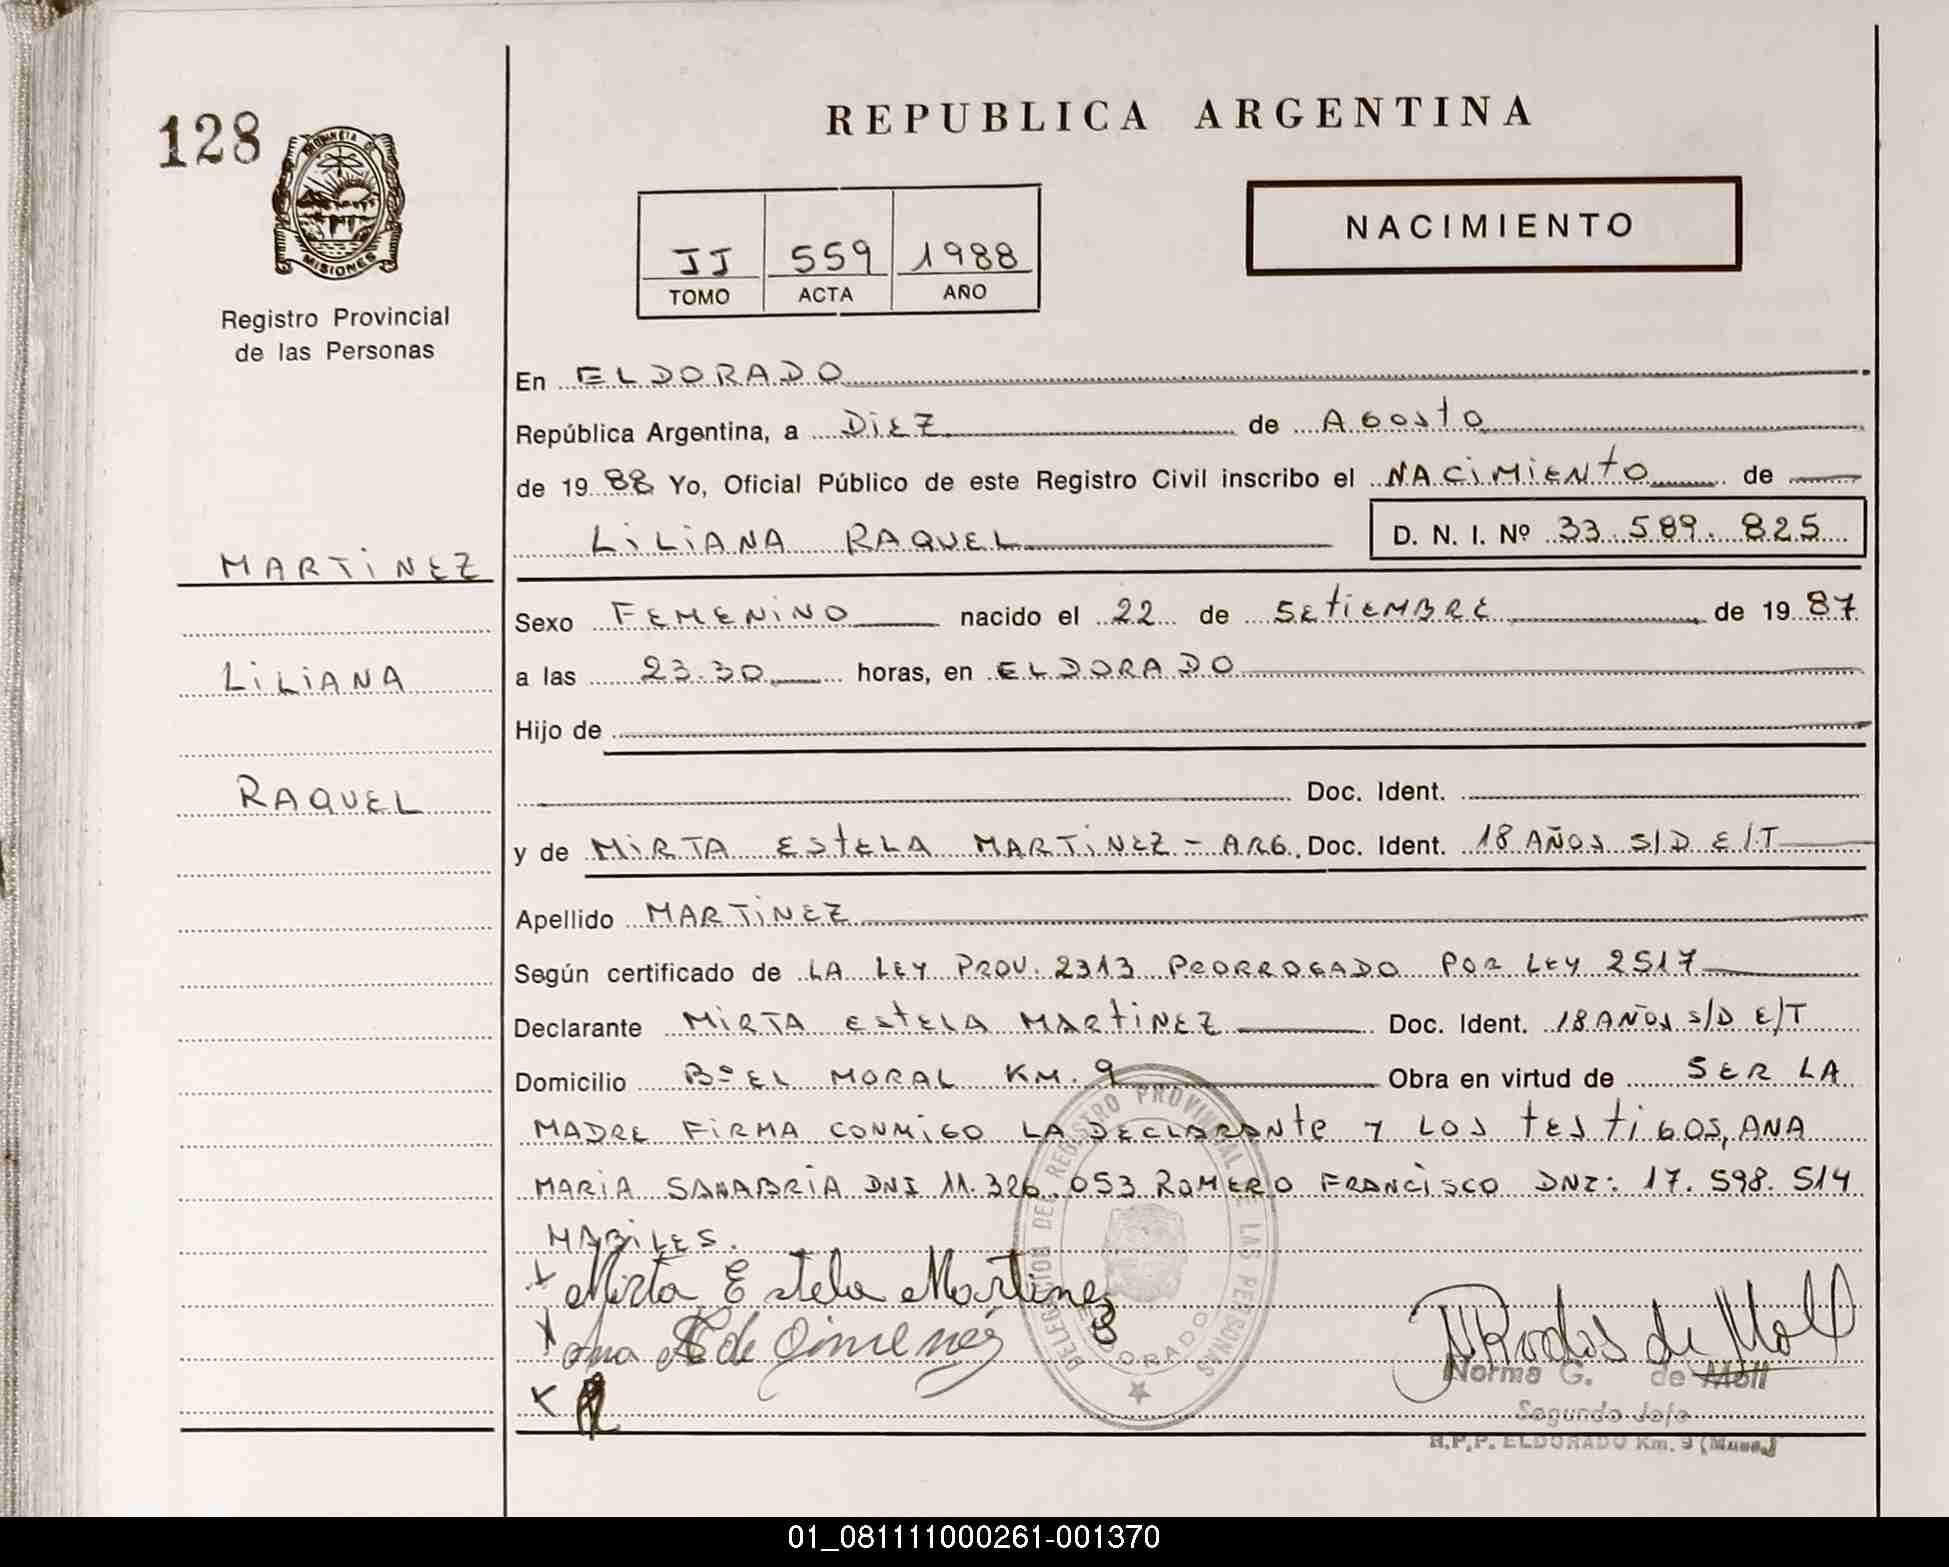 128
PROVINCIA DE
MISIONES
Registro Provincial
de las Personas
MARTINEZ
LILIANA
RAQUEL
REPUBLICA ARGENTINA
NACIMIENTO
JJ 559 1988
TOMO ACTA AÑO
En ELDORADO
República Argentina, a DIEZ de AGOSTO
de 1988 Yo, Oficial Público de este Registro Civil inscribo el NACIMIENTO de
LILIANA RAQUEL D. N. I. Nº 33.589.825
Sexo FEMENINO nacido el 22 de SETIEMBRE de 1987
a las 23.30 horas, en ELDORADO
Hijo de
Doc. Ident.
y de MIRTA ESTELA MARTINEZ - ARG. Doc. Ident. 18 AÑOS S/D E/T
Apellido MARTINEZ
Según certificado de LA LEY PROV. 2313 PRORROGADO POR LEY 2517
Declarante MIRTA ESTELA MARTINEZ Doc. Ident. 18 AÑOS S/D E/T
Domicilio Bº EL MORAL KM. 9 Obra en virtud de SER LA
MADRE FIRMA CONMIGO LA DECLARANTE Y LOS TESTIGOS, ANA
MARIA SANABRIA DNI 11.326.053 ROMERO FRANCISCO DNI: 17.598.514
HABILES.
x Mirta Estela Martinez
x Ana S de Gimenez
x
DELEGACION DEL REGISTRO PROVINCIAL DE LAS PERSONAS
ELDORADO
NRodas de Moll
Norma G. de Moll
Segundo Jefe
R.P.P. ELDORADO Km. 9 (Mune.)
01_081111000261-001370